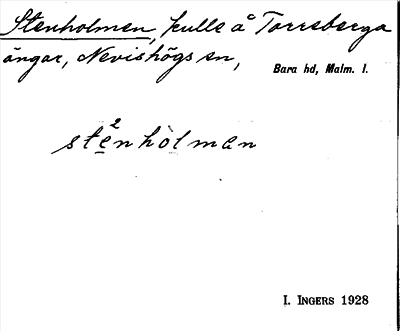 Stenholmen, kulle å Torreberga
ängar, Nevishögs sn,
Bara hd, Malm. l.
ste²nhòlman
I. INGERS 1928